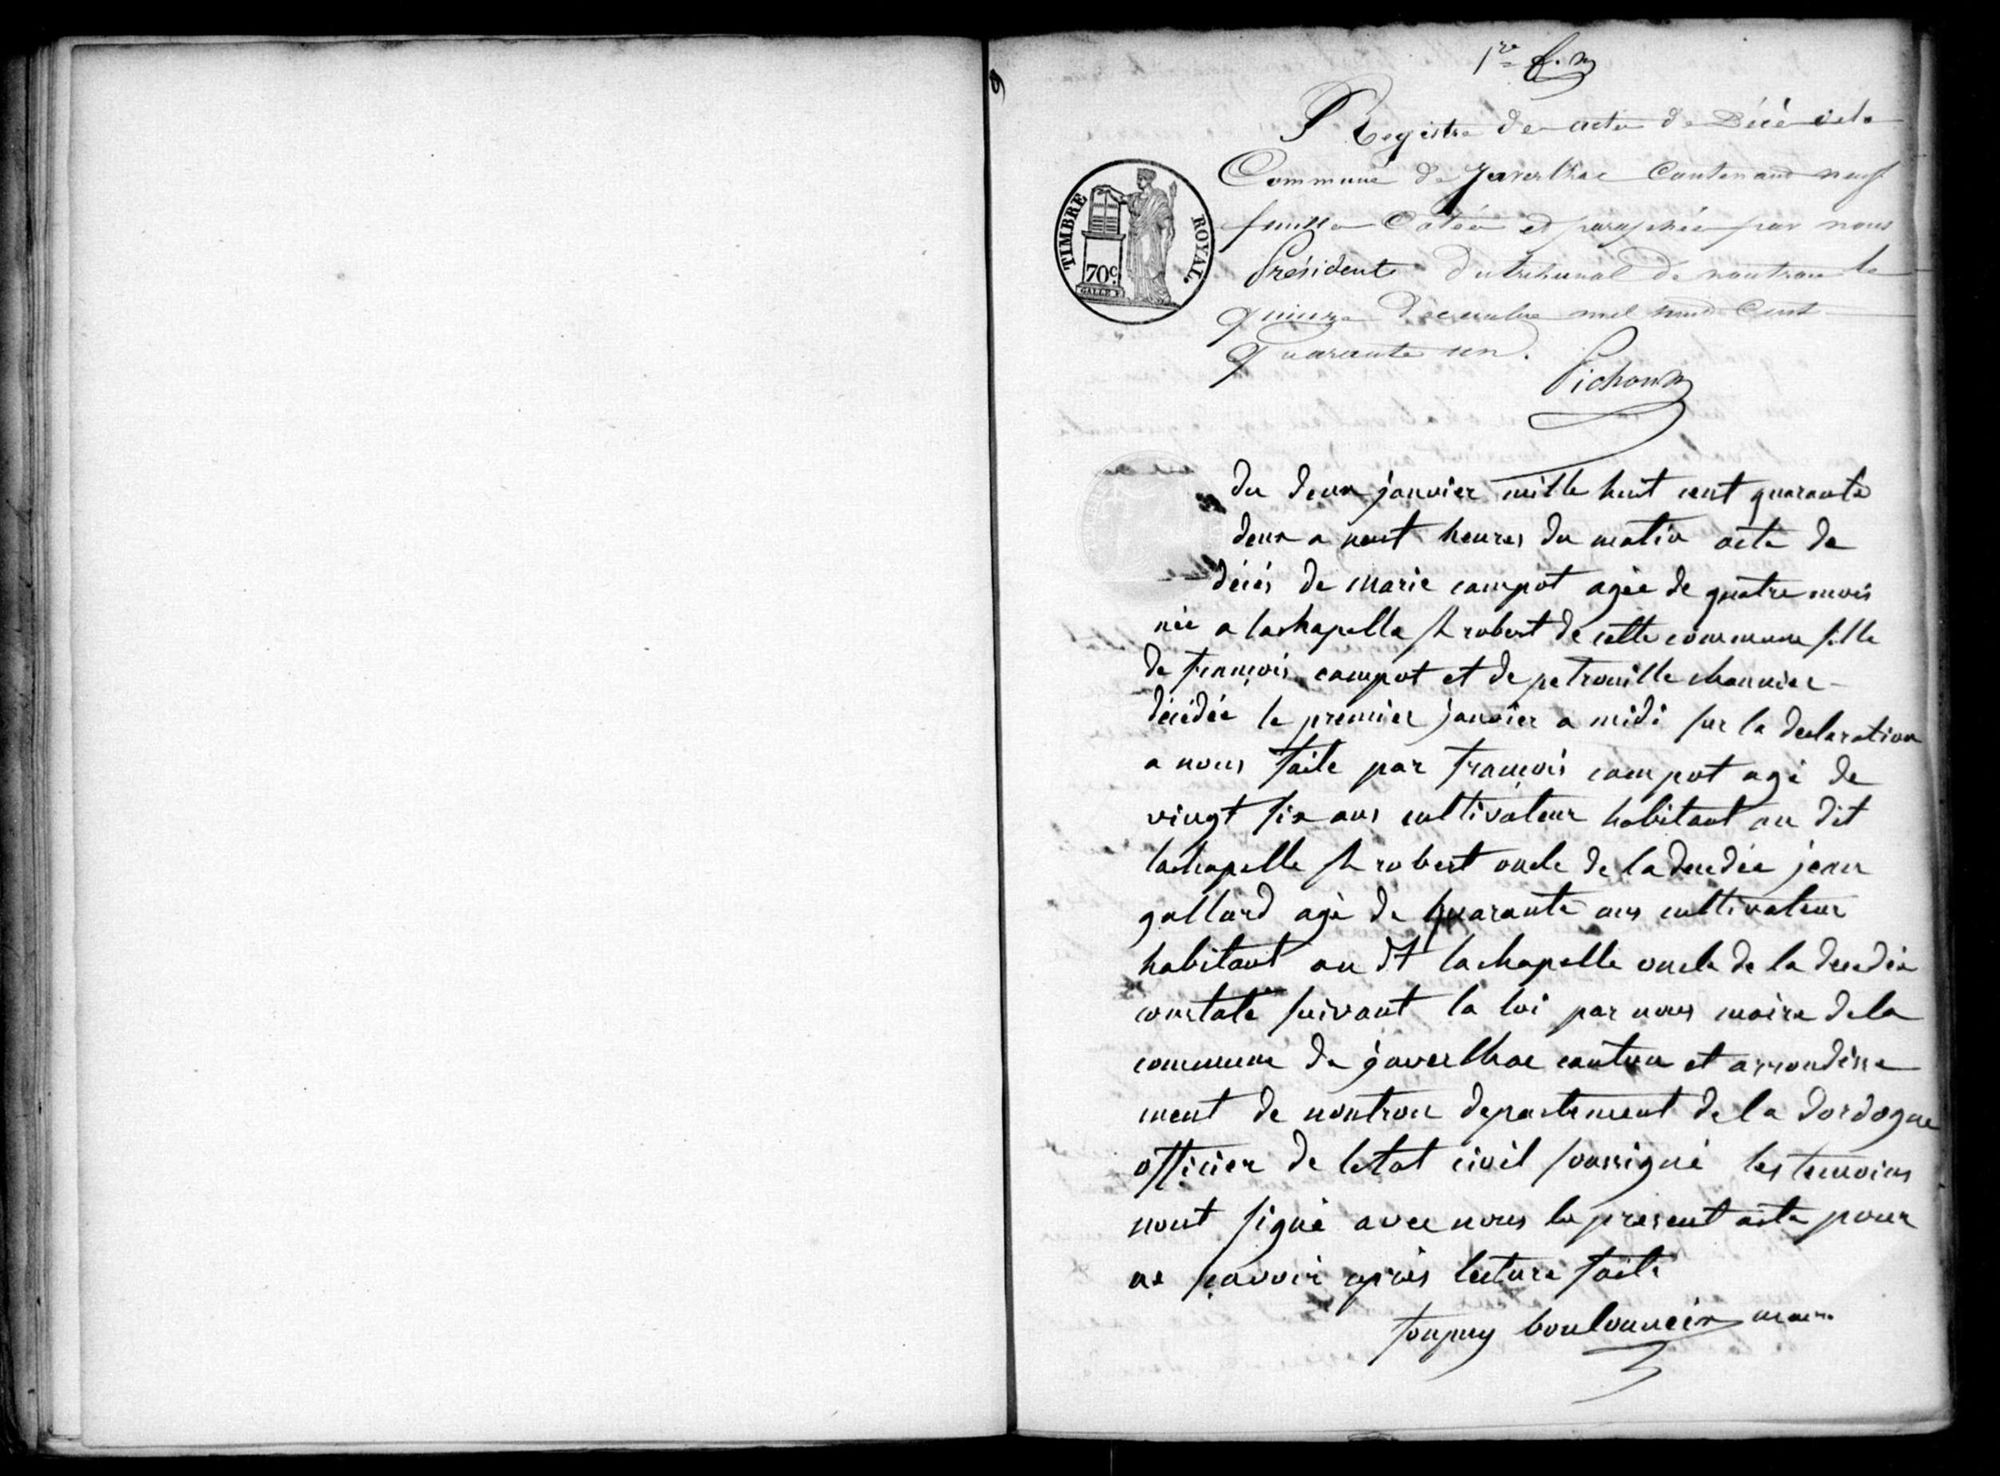 1re
Registre des actes de Décès de la
Commune de Javerlhac Contenant neuf
feuilles Cotées et paraphées par nous
Président du tribunal de nontron le
quinze Décembre mil huit Cent
quarante un.
Pichon
TIMBRE ROYAL.
70c.
du deux janvier mille huit cent quarante
deux a neuf heures du matin acte de
décés de marie campot agée de quatre mois
née a lachapelle St robert de cette commune fille
de françois campot et de petronille
décédée le premier janvier a midi sur la declaration
a nous faite par françois campot agé de
vingt six ans cultivateur habitant au dit
lachapelle St robert oncle de la decedée jean
gallard agé de quarante ans cultivateur
habitant au dt lachapelle oncle de la decedée
constaté suivant la loi par nous maire de la
commune de javerlhac canton et arrondisse
ment de nontron departement de la dordogne
officier de letat civil soussigné les temoins
nont signé avec nous le present acte pour
ne savoir après lecture faite
maire